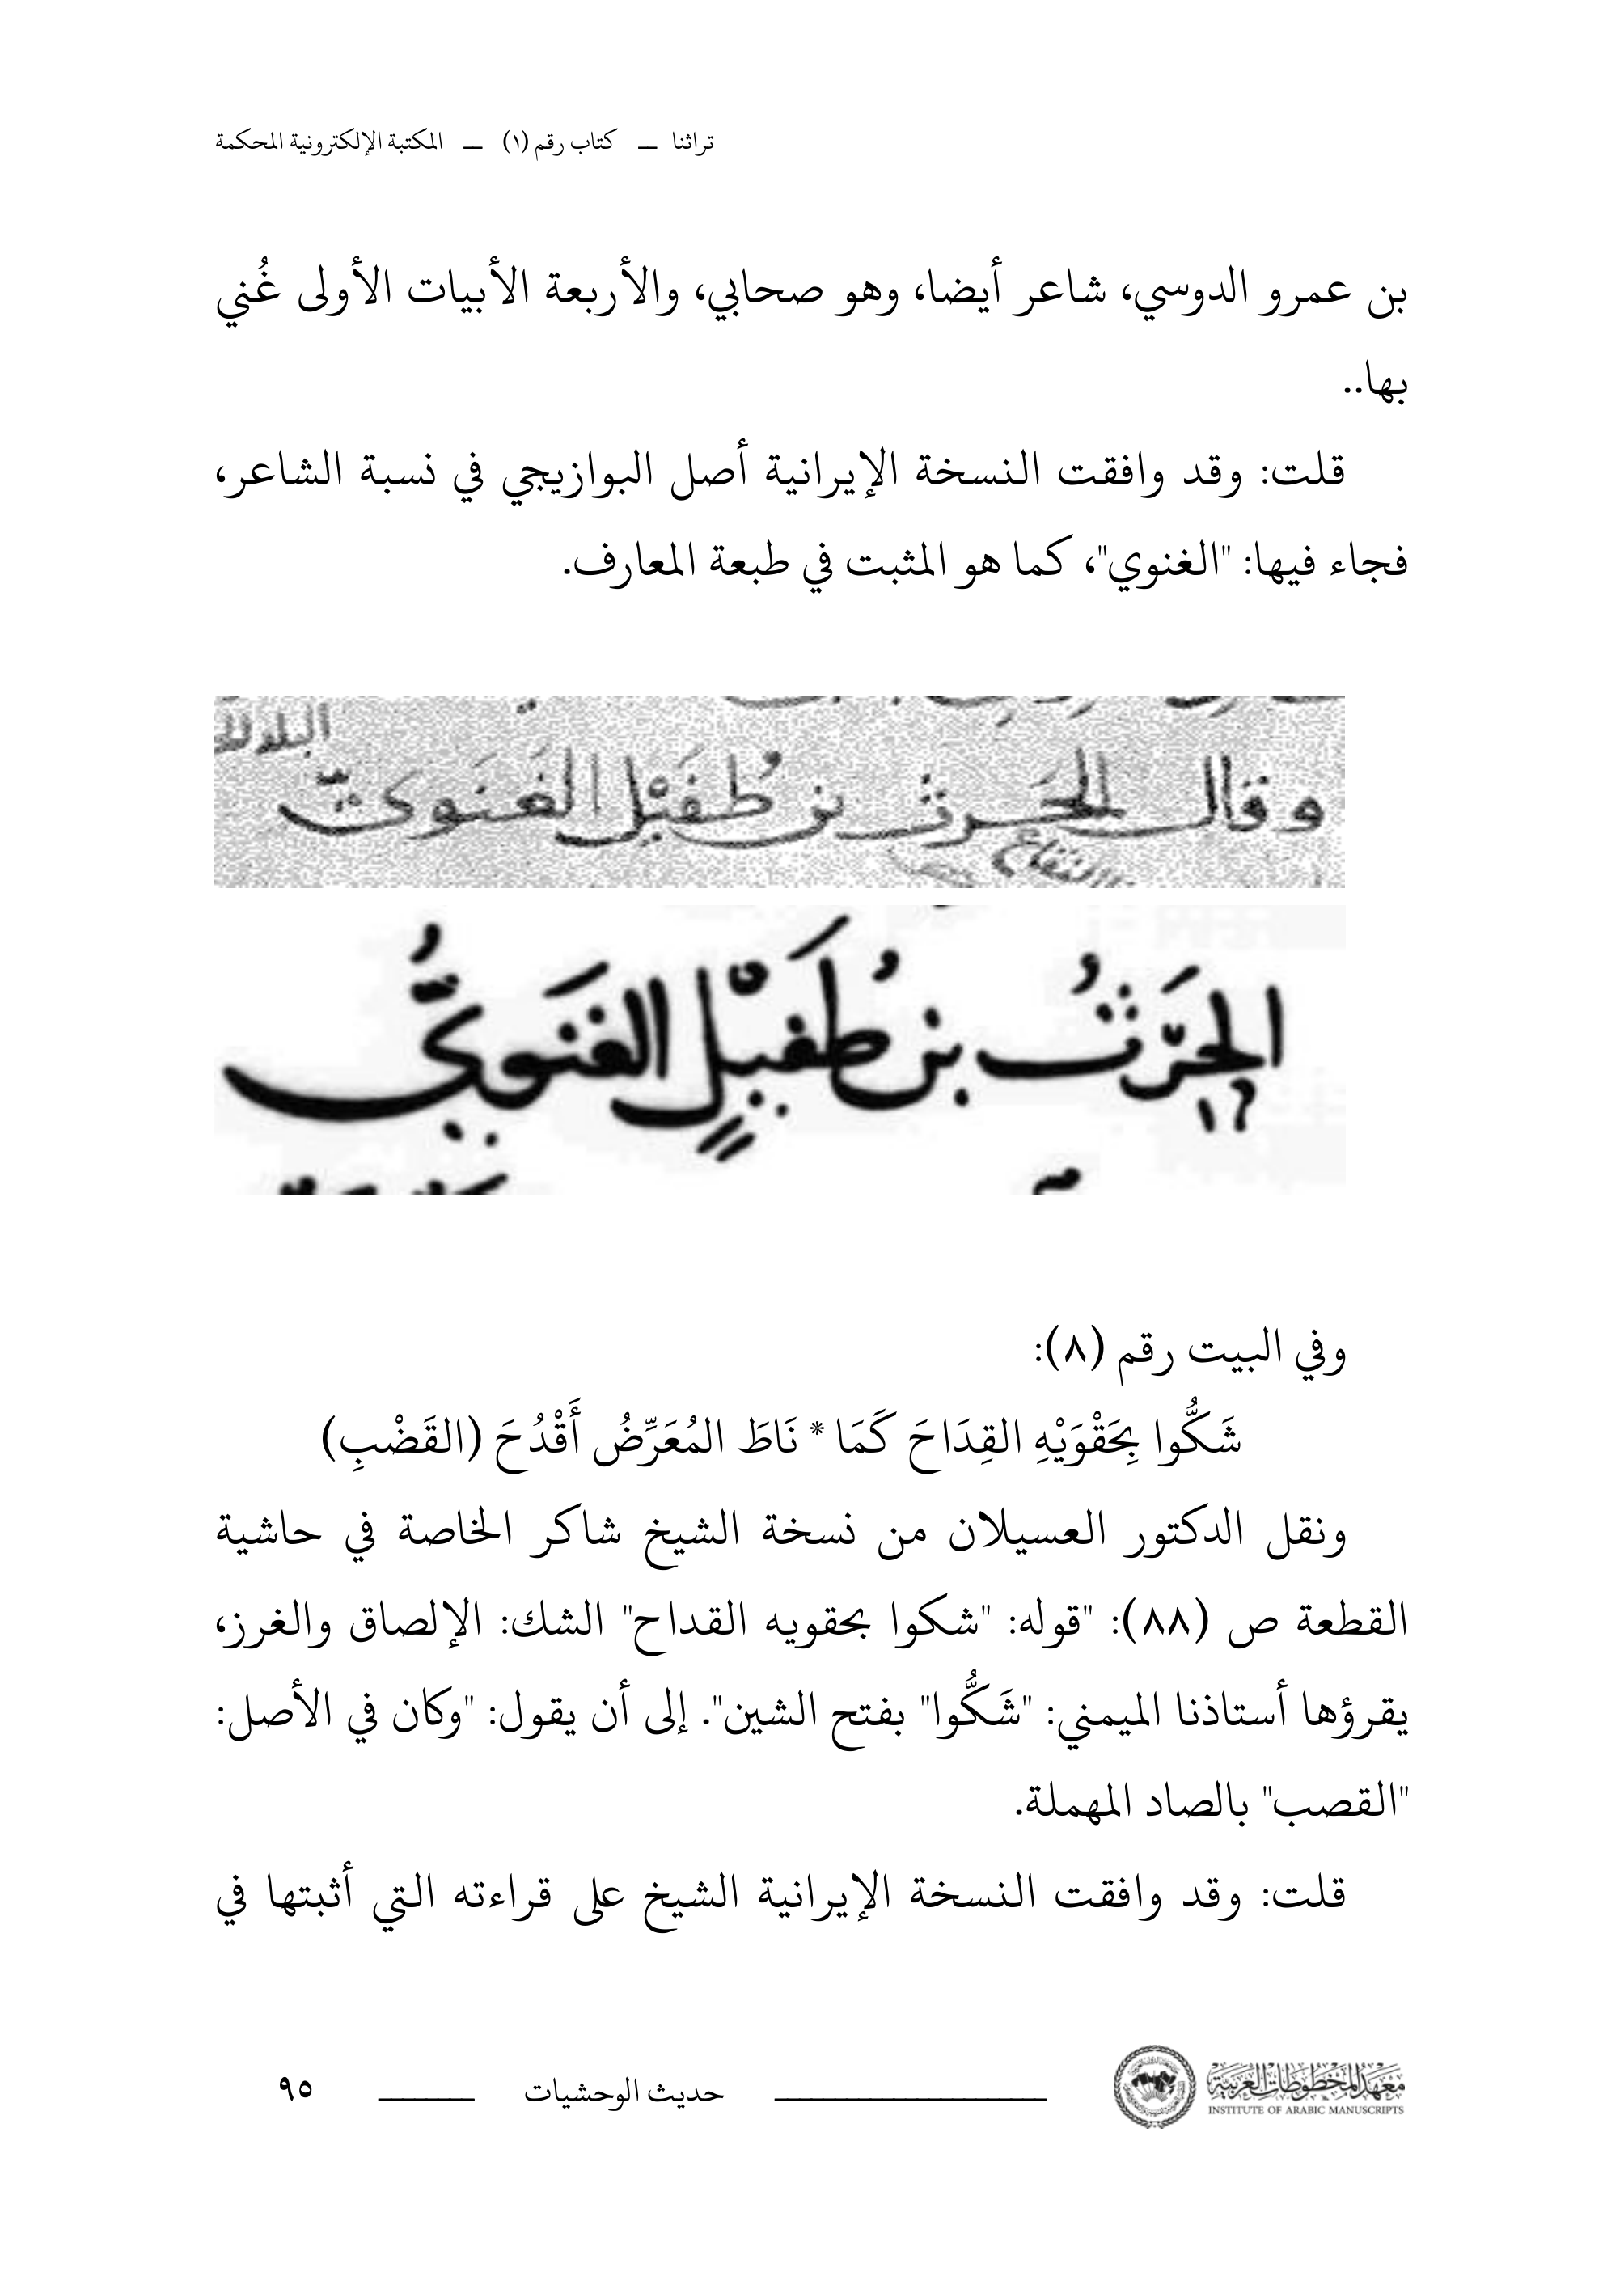 تراثنا — كتاب رقم (١) — المكتبة الإلكترونية المحكمة
بن عمرو الدوسي، شاعر أيضا، وهو صحابي، والأربعة الأبيات الأولى غُني
بها..
قلت: وقد وافقت النسخة الإيرانية أصل البوازيجي في نسبة الشاعر،
فجاء فيها: "الغنوي"، كما هو المثبت في طبعة المعارف.
وقال الحَرث بن طُفَيْل الغَنَوي
الحَرثُ بن طُفَيْلٍ الغَنَويُّ
وفي البيت رقم (٨):
شَكُّوا بِحَقْوَيْهِ القِدَاحَ كَمَا * نَاطَ المُعَرِّضُ أَقْدُحَ (القَضْبِ)
ونقل الدكتور العسيلان من نسخة الشيخ شاكر الخاصة في حاشية
القطعة ص (٨٨): "قوله: "شكوا بحقويه القداح" الشك: الإلصاق والغرز،
يقرؤها أستاذنا الميمني: "شَكُّوا" بفتح الشين". إلى أن يقول: "وكان في الأصل:
"القصب" بالصاد المهملة.
قلت: وقد وافقت النسخة الإيرانية الشيخ على قراءته التي أثبتها في
معهد المخطوطات العربية
INSTITUTE OF ARABIC MANUSCRIPTS
حديث الوحشيات
٩٥